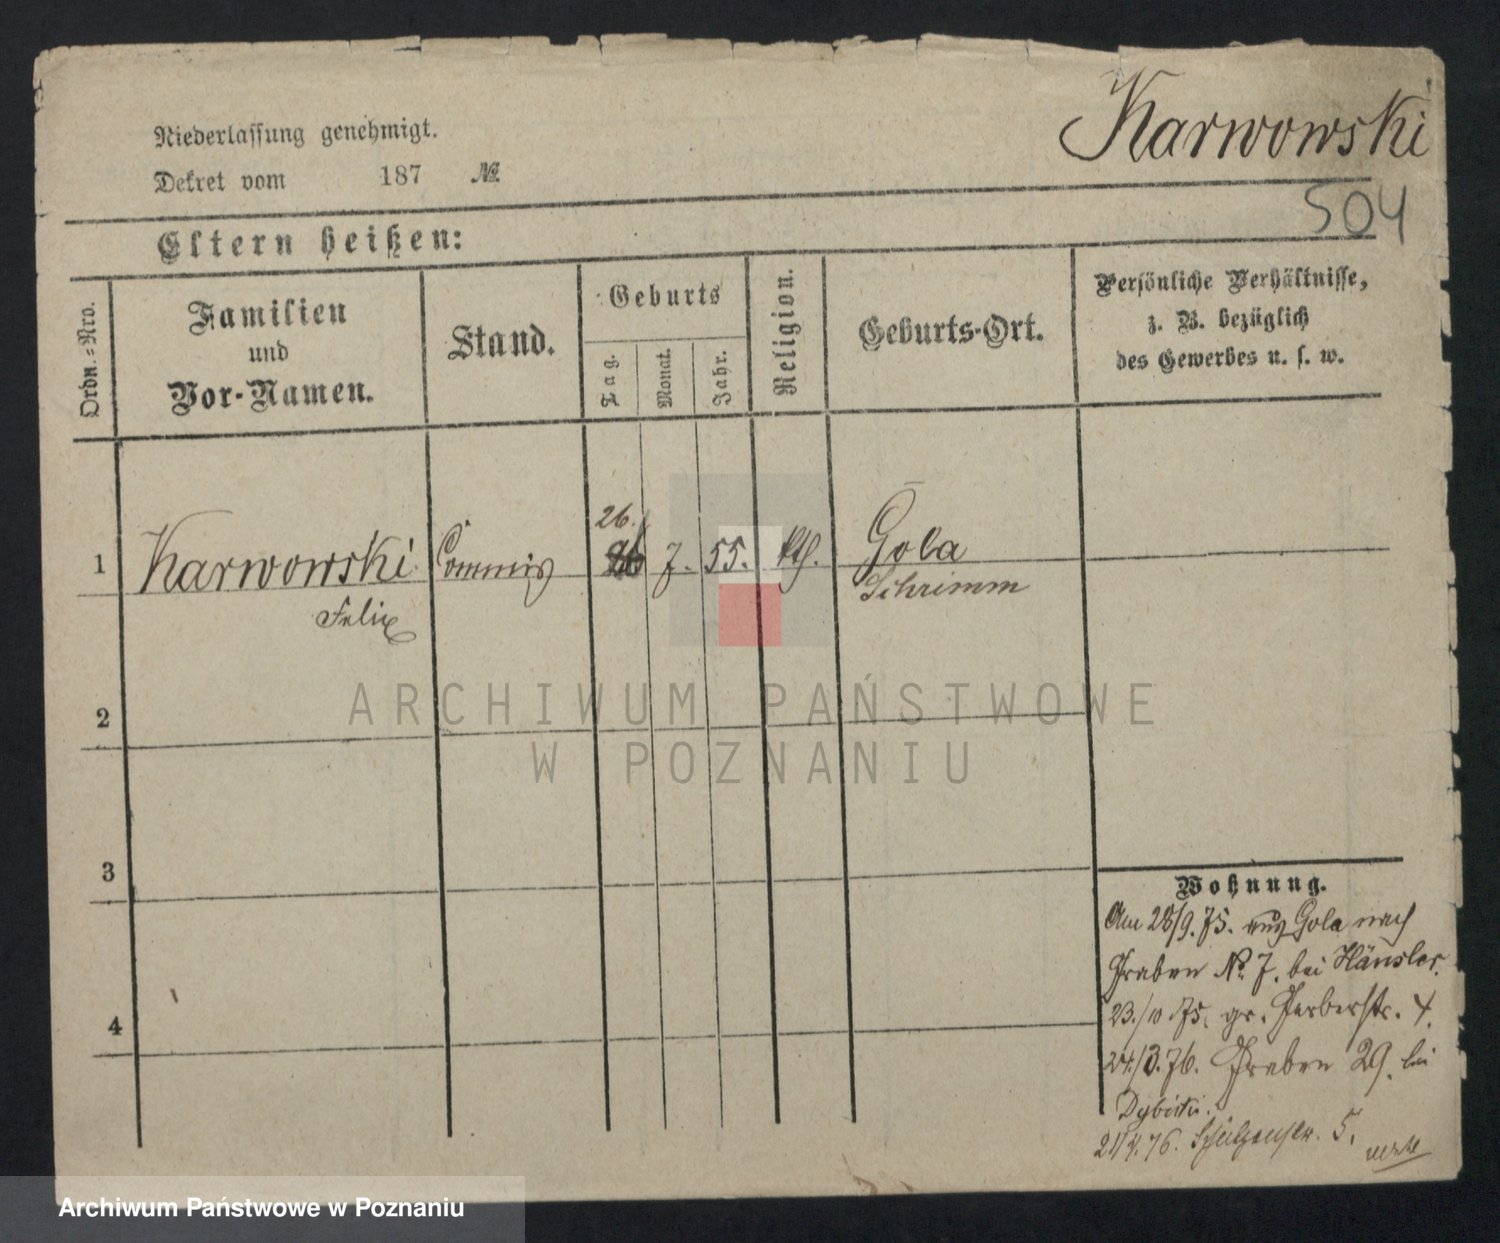 Karwowski
Niederlassung genehmigt.
Dekret vom 187 №
504
Eltern heißen:
Ordn.=Nro.
Familien
und
Vor-Namen.
Stand.
Geburts
Tag.
Monat.
Jahr.
Religion.
Geburts-Ort.
Persönliche Verhältnisse,
z. B. bezüglich
des Gewerbes u. s. w.
26.
1 Karwowski Commis 7. 55. kth. Gola
Felix Schrimm
2
3
4
Wohnung.
Am 28/9. 75. aus Gola nach
Graben No 7. bei Hänsler.
23./10 75. gr. Gerberstr. 4.
24./3. 76. Graben 29. bei
21/4. 76. 5.
ARCHIWUM PAŃSTWOWE
W POZNANIU
Archiwum Państwowe w Poznaniu